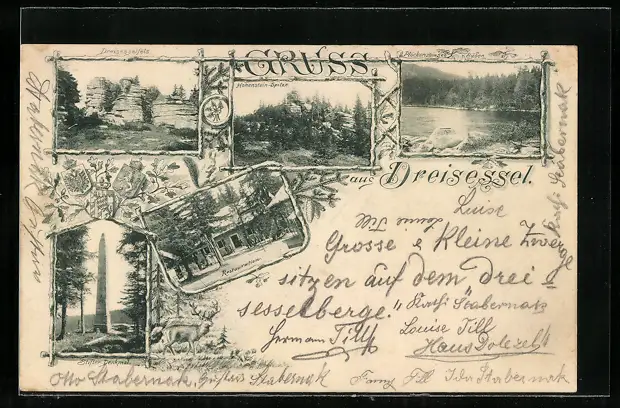 Dreisesselfels
GRUSS
Hohenstein-Spitze
aus Dreisessel.
Restauration
Stifter-Denkmal
Luise
Louise Till
Grosse & Kleine Zwerge
sitzen auf dem drei=
sesselberge."
Kathi Stabernak
Hermann Till
Louise Till
Hans Dolezel
Otto Stabernak, Gustav Stabernak
Fanny Till
Ida Stabernak
Stabernak